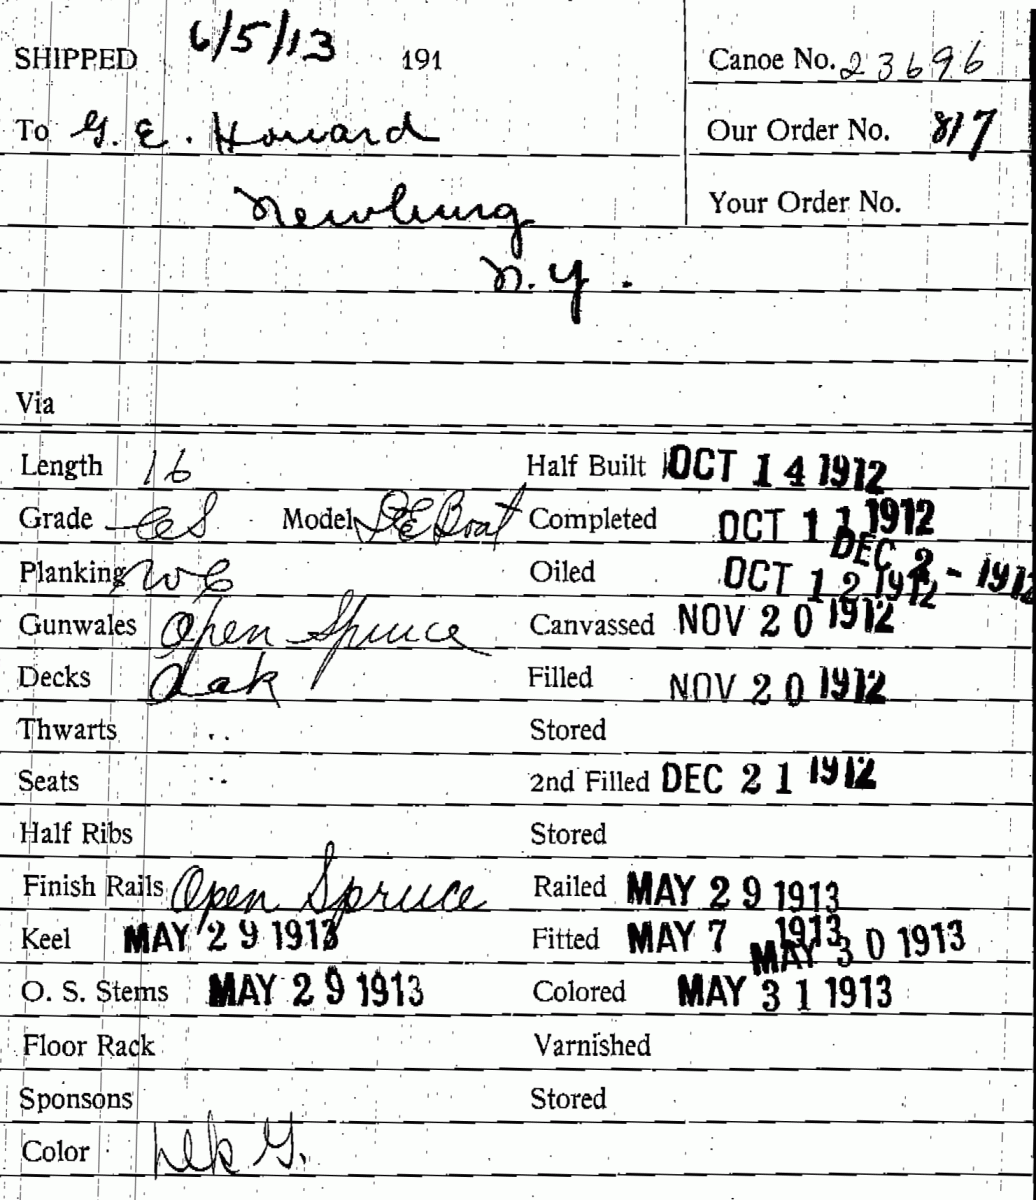 SHIPPED 6/5/13 191 Canoe No. 23696
To G. E. Howard Our Order No. 817
Newburg Your Order No.
N.Y.
Via
Length 16 Half Built OCT 14 1912
Grade CS Model DE Boat Completed OCT 11 1912
Planking WC Oiled OCT 12 1912 DEC 2 - 1912
Gunwales Open Spruce Canvassed NOV 20 1912
Decks Oak Filled NOV 20 1912
Thwarts .. Stored
Seats .. 2nd Filled DEC 21 1912
Half Ribs Stored
Finish Rails Open Spruce Railed MAY 29 1913
Keel MAY 29 1913 Fitted MAY 7 1913 MAY 30 1913
O. S. Stems MAY 29 1913 Colored MAY 31 1913
Floor Rack Varnished
Sponsons Stored
Color Dk G.